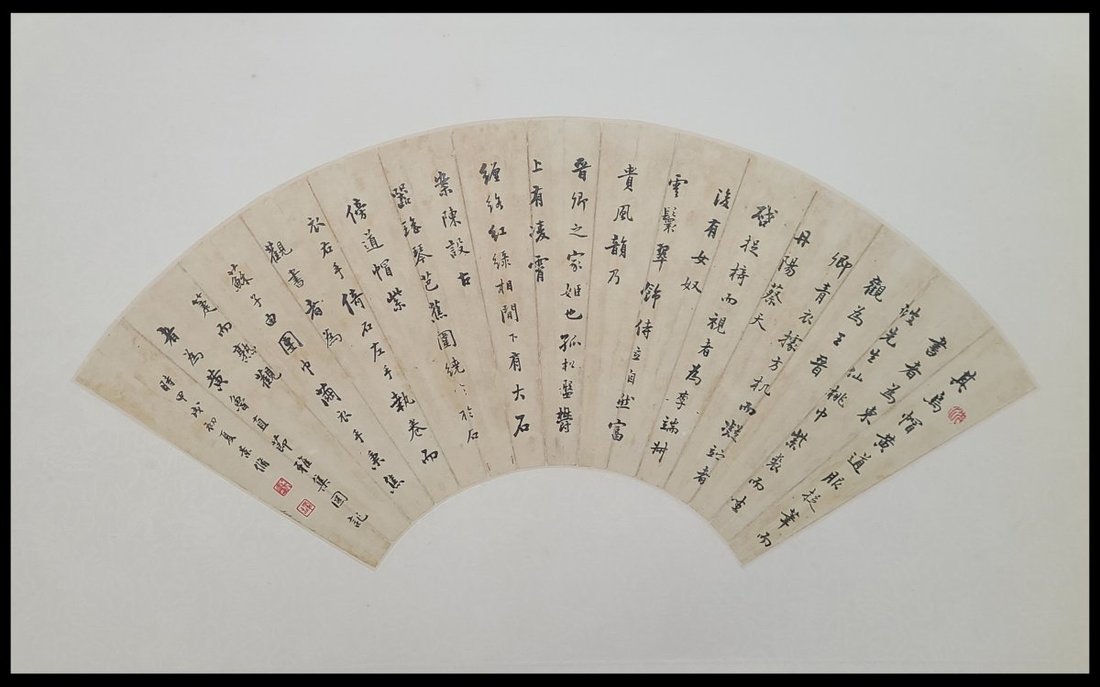 其烏帽黃道服捉筆而
書者為東
坡先生仙桃巾紫裘而坐
觀為王晉
卿青衣據方机而凝竚者
丹陽蔡天
啓捉椅而視者為李端叔
後有女奴
雲鬟翠飾侍立自然富
貴風韻乃
晉卿之家姬也孤松盤鬱
上有凌霄
纏絡紅綠相間下有大石
案陳設古
器瑤琴芭蕉圍繞〻於石
傍道帽紫
衣右手倚石左手執卷而
觀書者為
蘇子由團巾繭衣手秉蕉
箑而熟觀
者為黃魯直節雅集圖記
時甲戌初夏